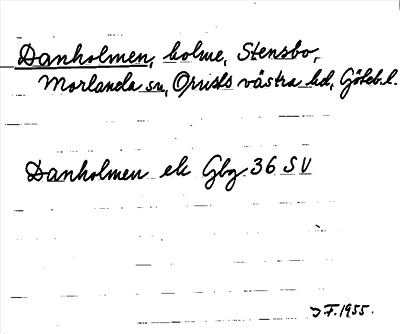 Danholmen, holme, Stensbo,
Morlanda sn, Orusts västra hd, Göteb. l.
Danholmen ek Gbg 36 SV
J F. 1955.